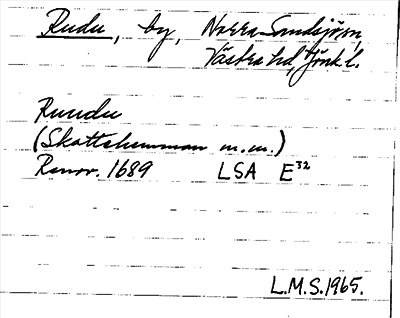 Rudu, by, Norra Sandsjö sn,
Västra hd, Jönk. l.
Ruudu
(Skattehemman m.m.)
Renov. 1689 LSA E³²
L.M.S. 1965.